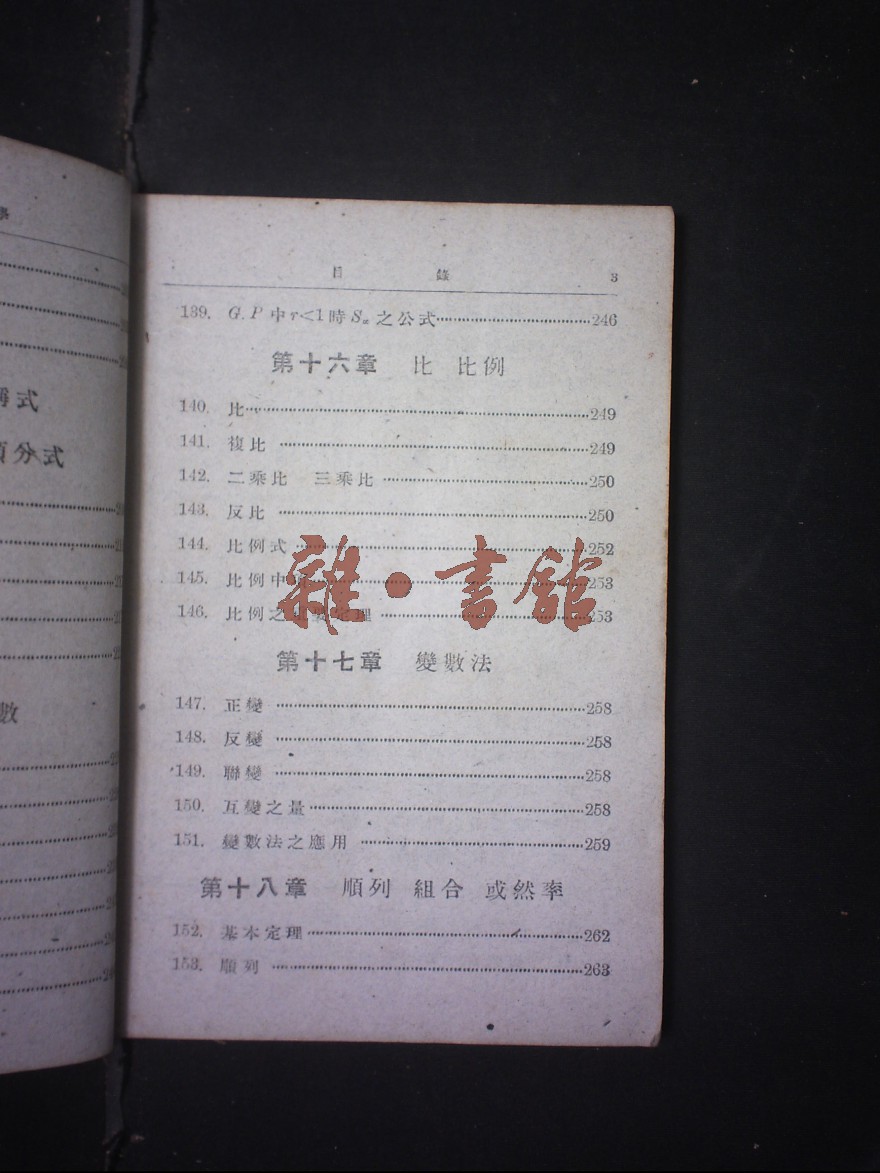 目錄 3
139. G. P 中 r<1 時 S∞ 之公式 246
第十六章 比 比例
140. 比 249
141. 複比 249
142. 二乘比 三乘比 250
143. 反比 250
144. 比例式 252
145. 比例中 253
146. 比例之 定理 253
雜·書館
第十七章 變數法
147. 正變 258
148. 反變 258
149. 聯變 258
150. 互變之量 258
151. 變數法之應用 259
第十八章 順列 組合 或然率
152. 基本定理 262
153. 順列 263
式
分式
數